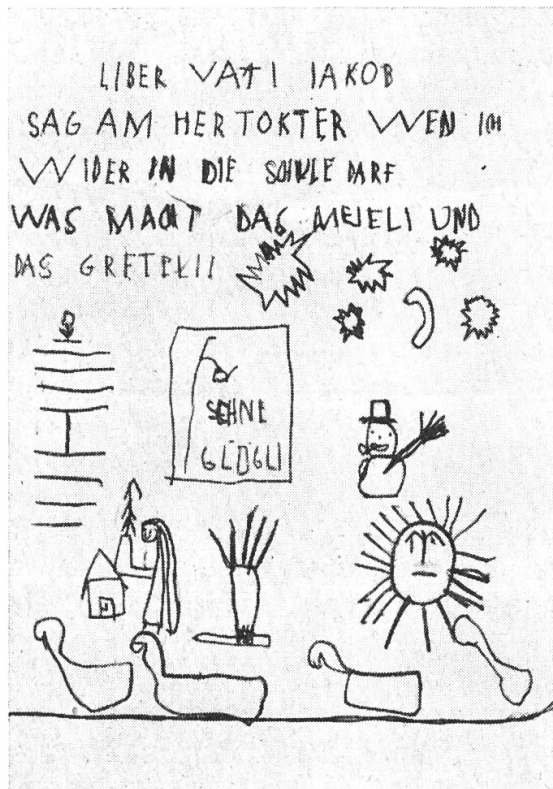 LIBER VATI IAKOB
SAG AM HER TOKTER WEN ICH
WIDER IN DIE SCHULE DARF
WAS MACHT DAS MEIELI UND
DAS GRETELI
SCHNE
GLÖGLI